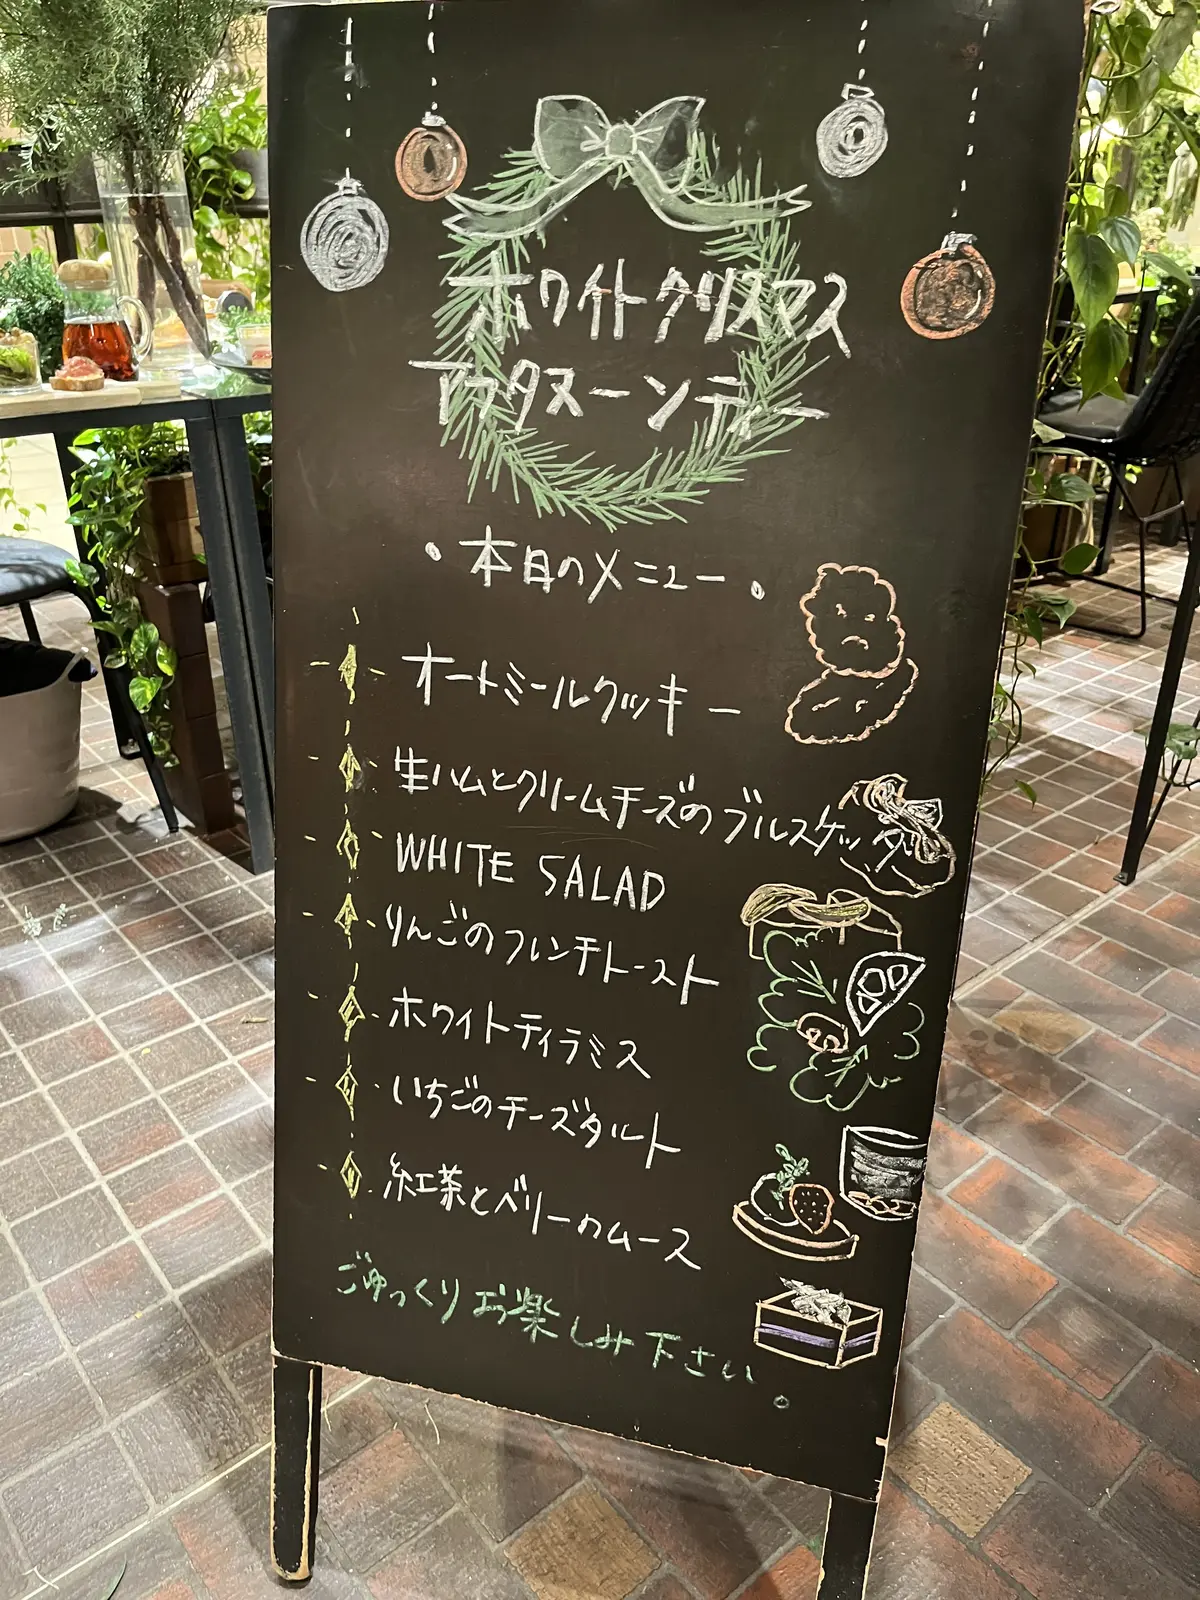 ホワイトクリスマス
アフタヌーンティー
・本日のメニュー。
オートミールクッキー
生ハムとクリームチーズのブルスケッタ
WHITE SALAD
りんごのフレンチトースト
ホワイトティラミス
いちごのチーズタルト
紅茶とベリーのムース
ごゆっくりお楽しみ下さい。